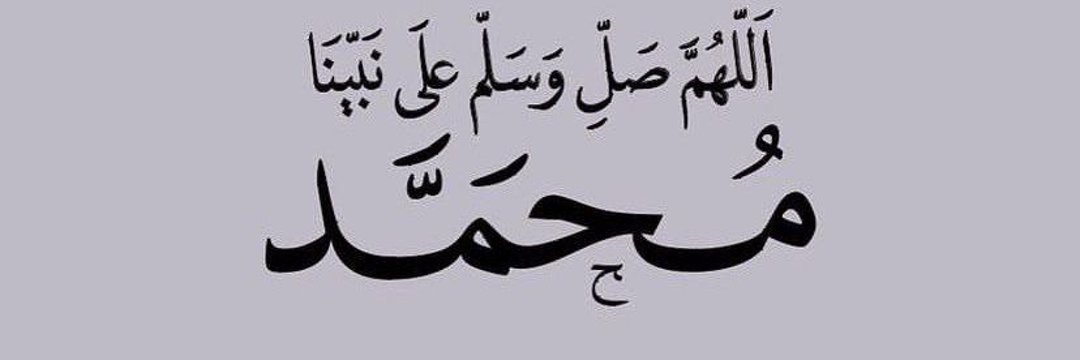 اَللّٰهُمَّ صَلِّ وَسَلِّم علَى نَبَيّنَا
مُحمَّد